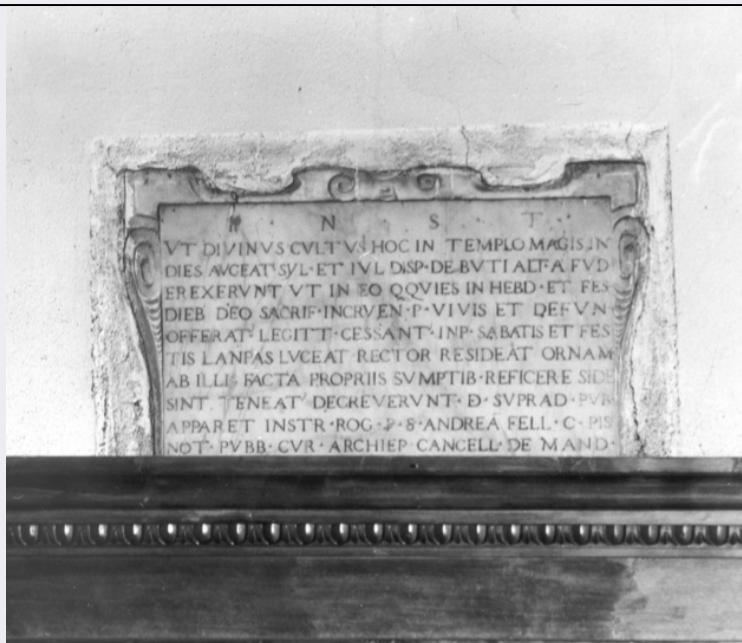 N S T
VT DIVINVS CVLTVS HOC IN TEMPLO MAGIS IN
DIES AVGEAT' SYL· ET IVL DISP· DE BVTI ALT· A FVD
EREXERVNT VT IN EO QQVIES IN HEBD· ET FES
DIEB DEO SACRIF· INCRVEN· P· VIVIS ET DEFVN·
OFFERAT' LEGITT· CESSANT' INP· SABATIS ET FES
TIS LANPAS LVCEAT RECTOR RESIDEAT ORNAM
AB ILLIS FACTA PROPRIIS SVMPTIB· REFICERE SIDE
SINT TENEAT' DECREVERVNT· D· SVPRAD· PVB
APPARET INSTR· ROG· P· S· ANDREA FELL· C· PIS
NOT· PVBB· CVR· ARCHIEP· CANCELL· DE MAND·